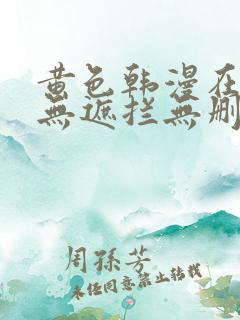 黄色韩漫在
無遮拦無删
周孫芳
未经同意禁止转载